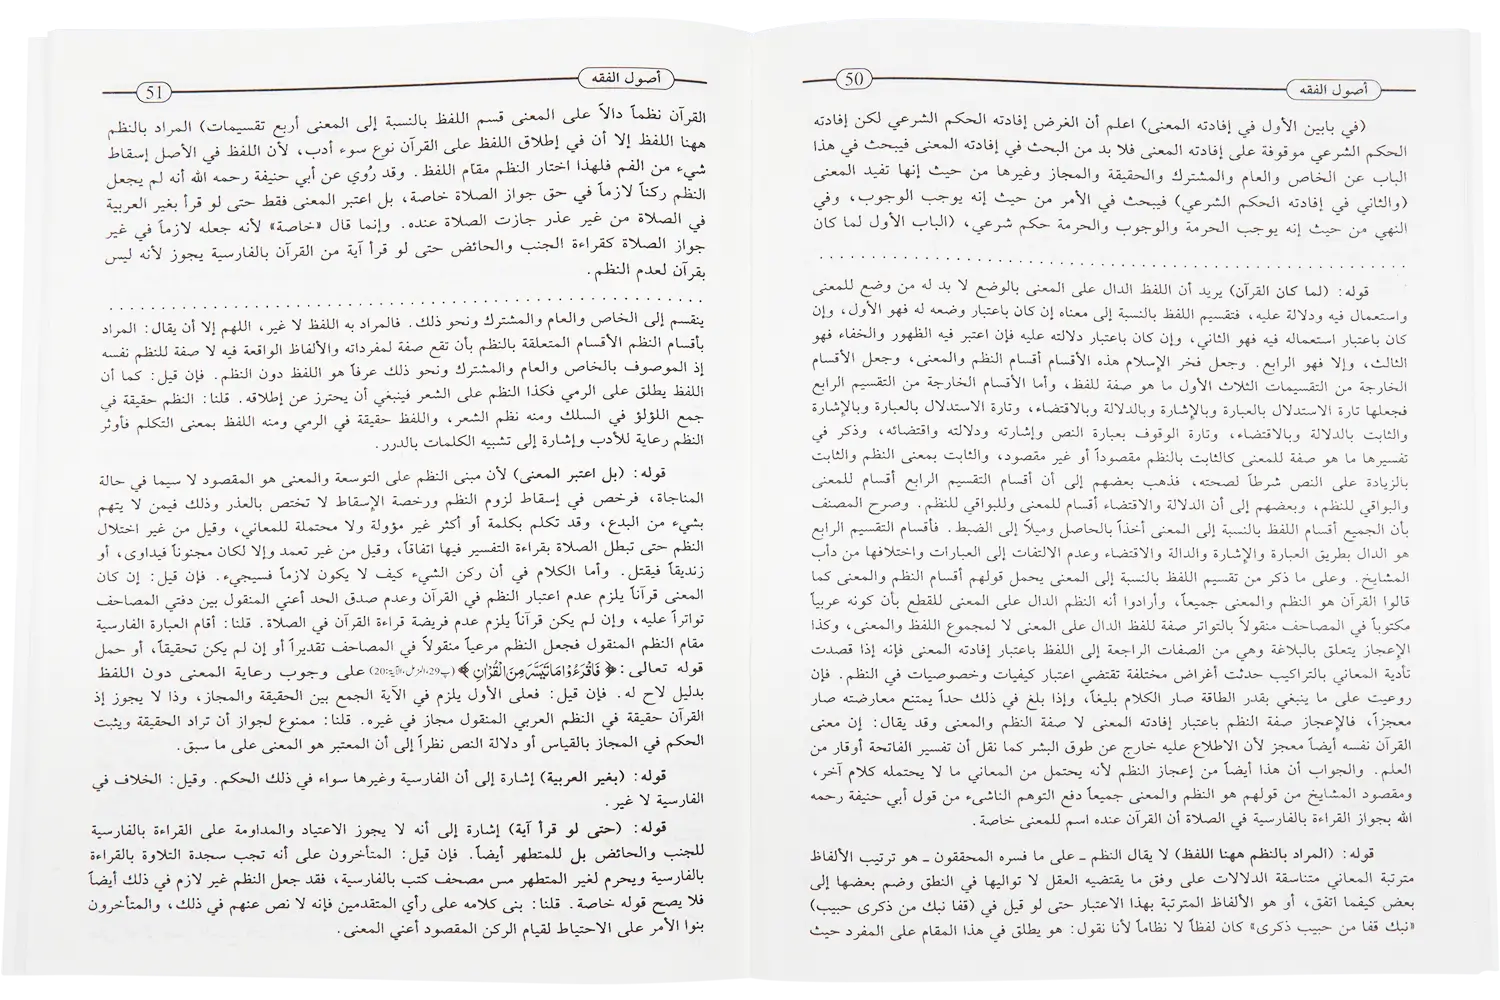 أصول الفقه
50
(في بابين الأول في إفادته المعنى) اعلم أن الغرض إفادته الحكم الشرعي لكن إفادته
الحكم الشرعي موقوفة على إفادته المعنى فلا بد من البحث في إفادته المعنى فيبحث في هذا
الباب عن الخاص والعام والمشترك والحقيقة والمجاز وغيرها من حيث إنها تفيد المعنى
(والثاني في إفادته الحكم الشرعي) فيبحث في الأمر من حيث إنه يوجب الوجوب، وفي
النهي من حيث إنه يوجب الحرمة والوجوب والحرمة حكم شرعي، (الباب الأول لما كان
قوله: (لما كان القرآن) يريد أن اللفظ الدال على المعنى بالوضع لا بد له من وضع للمعنى
واستعمال فيه ودلالة عليه، فتقسيم اللفظ بالنسبة إلى معناه إن كان باعتبار وضعه له فهو الأول، وإن
كان باعتبار استعماله فيه فهو الثاني، وإن كان باعتبار دلالته عليه فإن اعتبر فيه الظهور والخفاء فهو
الثالث، وإلا فهو الرابع. وجعل فخر الإسلام هذه الأقسام أقسام النظم والمعنى، وجعل الأقسام
الخارجة من التقسيمات الثلاث الأول ما هو صفة للفظ، وأما الأقسام الخارجة من التقسيم الرابع
فجعلها تارة الاستدلال بالعبارة وبالإشارة وبالدلالة وبالاقتضاء، وتارة الاستدلال بالعبارة وبالإشارة
والثابت بالدلالة وبالاقتضاء، وتارة الوقوف بعبارة النص وإشارته ودلالته واقتضائه، وذكر في
تفسيرها ما هو صفة للمعنى كالثابت بالنظم مقصوداً أو غير مقصود، والثابت بمعنى النظم والثابت
بالزيادة على النص شرطاً لصحته، فذهب بعضهم إلى أن أقسام التقسيم الرابع أقسام للمعنى
والبواقي للنظم، وبعضهم إلى أن الدلالة والاقتضاء أقسام للمعنى وللبواقي للنظم. وصرح المصنف
بأن الجميع أقسام اللفظ بالنسبة إلى المعنى أخذاً بالحاصل وميلاً إلى الضبط. فأقسام التقسيم الرابع
هو الدال بطريق العبارة والإشارة والدالة والاقتضاء وعدم الالتفات إلى العبارات واختلافها من دأب
المشايخ. وعلى ما ذكر من تقسيم اللفظ بالنسبة إلى المعنى يحمل قولهم أقسام النظم والمعنى كما
قالوا القرآن هو النظم والمعنى جميعاً، وأرادوا أنه النظم الدال على المعنى للقطع بأن كونه عربياً
مكتوباً في المصاحف منقولاً بالتواتر صفة للفظ الدال على المعنى لا لمجموع اللفظ والمعنى، وكذا
الإعجاز يتعلق بالبلاغة وهي من الصفات الراجعة إلى اللفظ باعتبار إفادته المعنى فإنه إذا قصدت
تأدية المعاني بالتراكيب حدثت أغراض مختلفة تقتضي اعتبار كيفيات وخصوصيات في النظم. فإن
روعيت على ما ينبغي بقدر الطاقة صار الكلام بليغاً، وإذا بلغ في ذلك حداً يمتنع معارضته صار
معجزاً، فالإعجاز صفة النظم باعتبار إفادته المعنى لا صفة النظم والمعنى وقد يقال: إن معنى
القرآن نفسه أيضاً معجز لأن الاطلاع عليه خارج عن طوق البشر كما نقل أن تفسير الفاتحة أوقار من
العلم. والجواب أن هذا أيضاً من إعجاز النظم لأنه يحتمل من المعاني ما لا يحتمله كلام آخر،
ومقصود المشايخ من قولهم هو النظم والمعنى جميعاً دفع التوهم الناشىء من قول أبي حنيفة رحمه
الله بجواز القراءة بالفارسية في الصلاة أن القرآن عنده اسم للمعنى خاصة.
قوله: (المراد بالنظم ههنا اللفظ) لا يقال النظم ـ على ما فسره المحققون ـ هو ترتيب الألفاظ
مترتبة المعاني متناسقة الدلالات على وفق ما يقتضيه العقل لا تواليها في النطق وضم بعضها إلى
بعض كيفما اتفق، أو هو الألفاظ المترتبة بهذا الاعتبار حتى لو قيل في (قفا نبك من ذكرى حبيب)
«نبك قفا من حبيب ذكرى» كان لفظاً لا نظاماً لأنا نقول: هو يطلق في هذا المقام على المفرد حيث
أصول الفقه
51
القرآن نظماً دالاً على المعنى قسم اللفظ بالنسبة إلى المعنى أربع تقسيمات) المراد بالنظم
ههنا اللفظ إلا أن في إطلاق اللفظ على القرآن نوع سوء أدب، لأن اللفظ في الأصل إسقاط
شيء من الفم فلهذا اختار النظم مقام اللفظ. وقد رُوي عن أبي حنيفة رحمه الله أنه لم يجعل
النظم ركناً لازماً في حق جواز الصلاة خاصة، بل اعتبر المعنى فقط حتى لو قرأ بغير العربية
في الصلاة من غير عذر جازت الصلاة عنده. وإنما قال «خاصة» لأنه جعله لازماً في غير
جواز الصلاة كقراءة الجنب والحائض حتى لو قرأ آية من القرآن بالفارسية يجوز لأنه ليس
بقرآن لعدم النظم.
ينقسم إلى الخاص والعام والمشترك ونحو ذلك. فالمراد به اللفظ لا غير، اللهم إلا أن يقال: المراد
بأقسام النظم الأقسام المتعلقة بالنظم بأن تقع صفة لمفرداته والألفاظ الواقعة فيه لا صفة للنظم نفسه
إذ الموصوف بالخاص والعام والمشترك ونحو ذلك عرفاً هو اللفظ دون النظم. فإن قيل: كما أن
اللفظ يطلق على الرمي فكذا النظم على الشعر فينبغي أن يحترز عن إطلاقه. قلنا: النظم حقيقة في
جمع اللؤلؤ في السلك ومنه نظم الشعر، واللفظ حقيقة في الرمي ومنه اللفظ بمعنى التكلم فأوثر
النظم رعاية للأدب وإشارة إلى تشبيه الكلمات بالدرر.
قوله: (بل اعتبر المعنى) لأن مبنى النظم على التوسعة والمعنى هو المقصود لا سيما في حالة
المناجاة، فرخص في إسقاط لزوم النظم ورخصة الإسقاط لا تختص بالعذر وذلك فيمن لا يتهم
بشيء من البدع، وقد تكلم بكلمة أو أكثر غير مؤولة ولا محتملة للمعاني، وقيل من غير اختلال
النظم حتى تبطل الصلاة بقراءة التفسير فيها اتفاقاً، وقيل من غير تعمد وإلا لكان مجنوناً فيداوى، أو
زنديقاً فيقتل. وأما الكلام في أن ركن الشيء كيف لا يكون لازماً فسيجيء. فإن قيل: إن كان
المعنى قرآناً يلزم عدم اعتبار النظم في القرآن وعدم صدق الحد أعني المنقول بين دفتي المصاحف
تواتراً عليه، وإن لم يكن قرآناً يلزم عدم فريضة قراءة القرآن في الصلاة. قلنا: أقام العبارة الفارسية
مقام النظم المنقول فجعل النظم مرعياً منقولاً في المصاحف تقديراً أو إن لم يكن تحقيقاً، أو حمل
قوله تعالى: ﴿فَاقْرَءُوْا مَا تَيَسَّرَ مِنَ الْقُرْاٰنِ﴾ (پ29، المزمل، الآية:20) على وجوب رعاية المعنى دون اللفظ
بدليل لاح له. فإن قيل: فعلى الأول يلزم في الآية الجمع بين الحقيقة والمجاز، وذا لا يجوز إذ
القرآن حقيقة في النظم العربي المنقول مجاز في غيره. قلنا: ممنوع لجواز أن تراد الحقيقة ويثبت
الحكم في المجاز بالقياس أو دلالة النص نظراً إلى أن المعتبر هو المعنى على ما سبق.
قوله: (بغير العربية) إشارة إلى أن الفارسية وغيرها سواء في ذلك الحكم. وقيل: الخلاف في
الفارسية لا غير.
قوله: (حتى لو قرأ آية) إشارة إلى أنه لا يجوز الاعتياد والمداومة على القراءة بالفارسية
للجنب والحائض بل للمتطهر أيضاً. فإن قيل: المتأخرون على أنه تجب سجدة التلاوة بالقراءة
بالفارسية ويحرم لغير المتطهر مس مصحف كتب بالفارسية، فقد جعل النظم غير لازم في ذلك أيضاً
فلا يصح قوله خاصة. قلنا: بنى كلامه على رأي المتقدمين فإنه لا نص عنهم في ذلك، والمتأخرون
بنوا الأمر على الاحتياط لقيام الركن المقصود أعني المعنى.